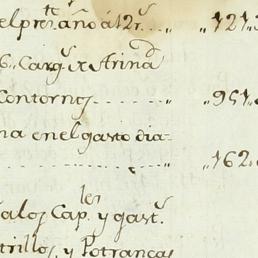 el pres.te año á 12 r.s .... „ „ 121„
6„ Carg.s de Arina
contornos ...... „ „ 951„
na en el gasto dia-
........ „ „ 162„
galos Cap.les y gast.s
trillos, y Potrancas